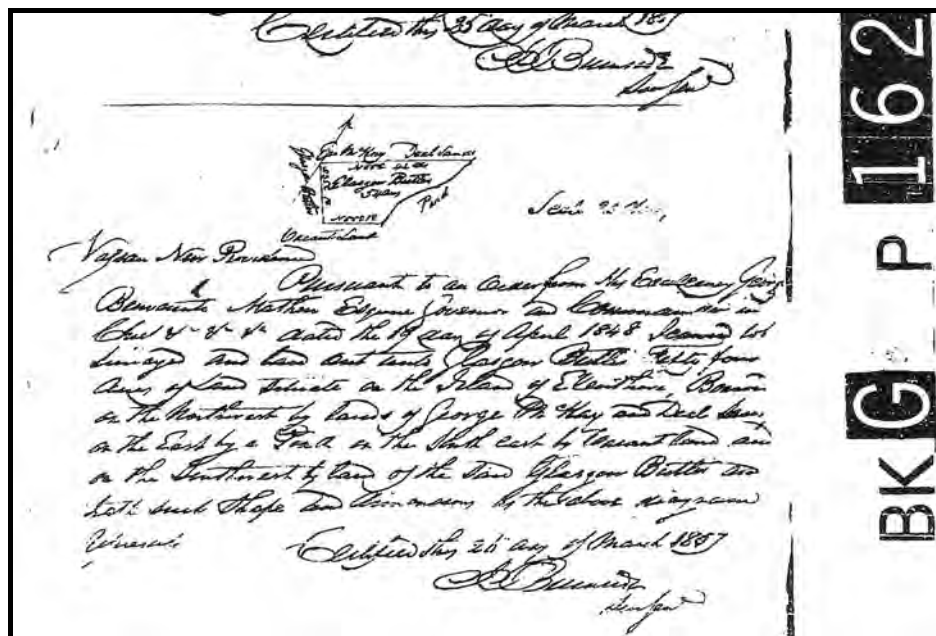 Certified this 25 day of March 1857
J J Burnside
Sur Gen
Geo McKay Deel
Glasgow Butler
Glasgow Butler
54 acres
Pond
Vacant Land
Nassau New Providence
Pursuant to an order from His Excellency George
Benvenuto Mathew Esquire Governor and Commander in
Chief &c &c &c dated the 19 day of April 1848 I have
Surveyed and laid out unto Glasgow Butler Fifty four
acres of Land situate on the Island of Eleuthera, Bound
on the Northwest by lands of George McKay and Deel
on the East by a Pond on the South east by Vacant land and
on the Southwest by land of the said Glasgow Butler and
hath such Shape and dimensions as the above diagram
Certified this day of March 1857
Burnside
Sur Gen
BK G P 162